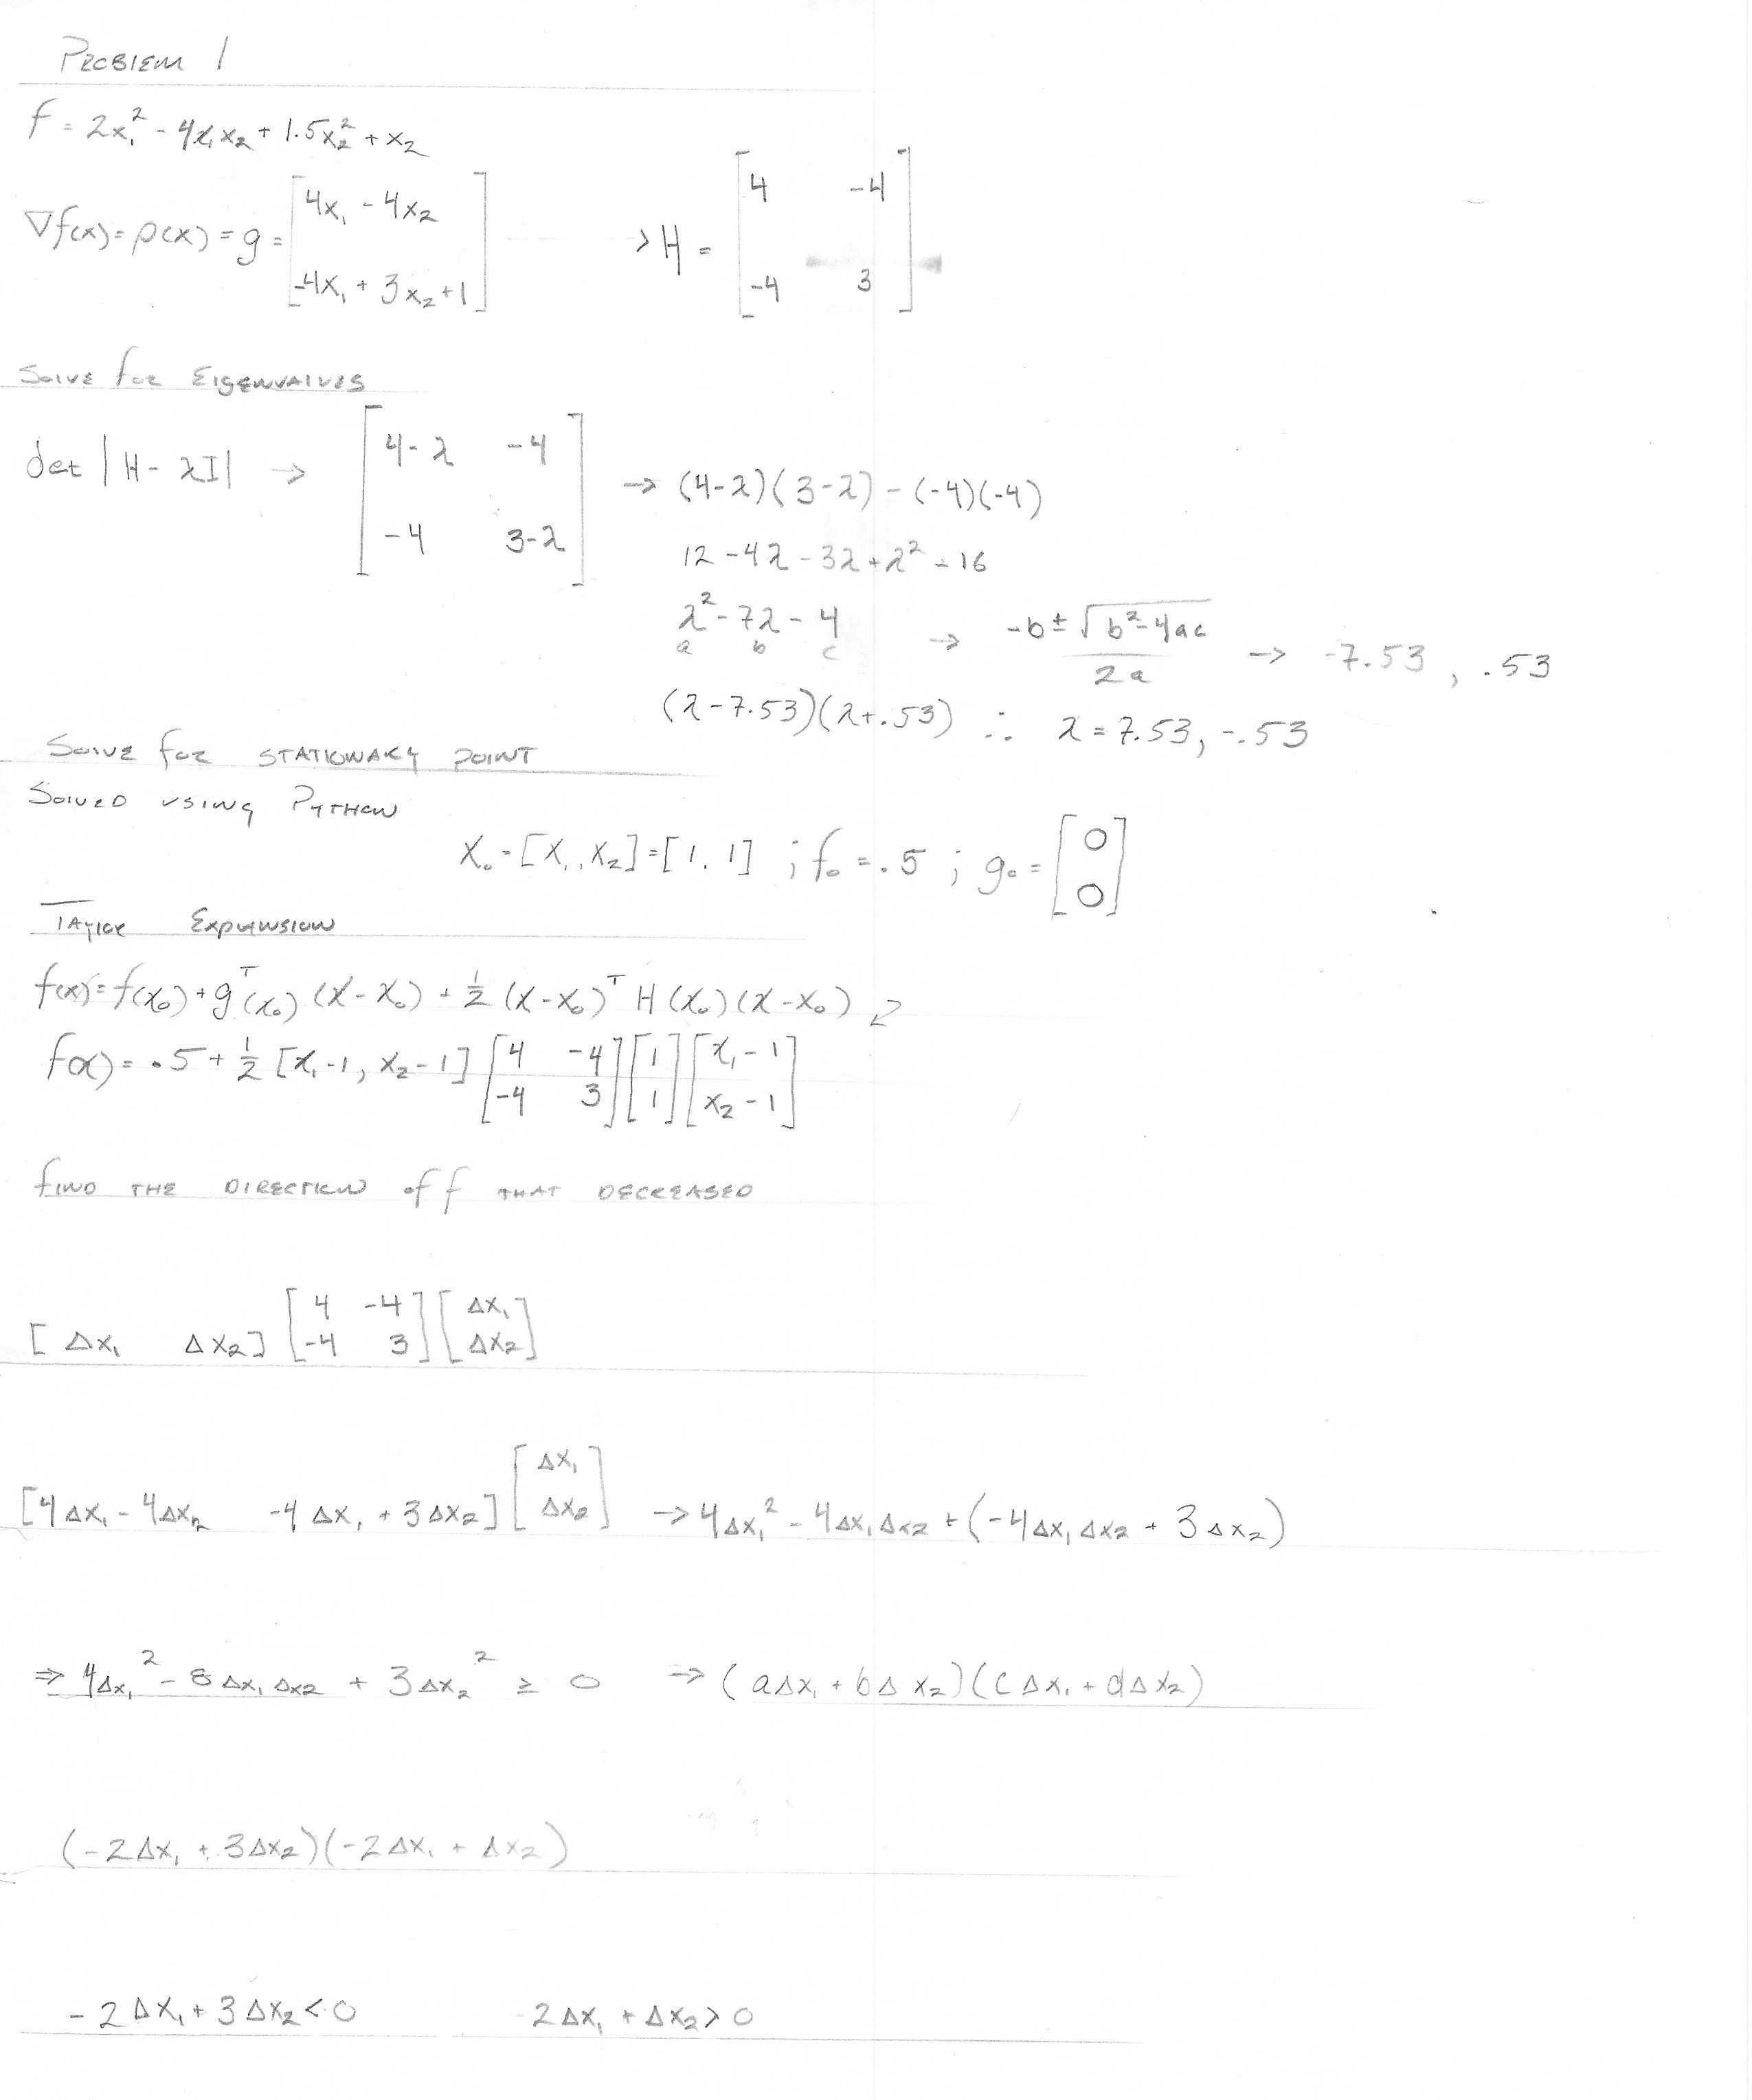 PROBLEM 1
f = 2x₁² - 4x₁x₂ + 1.5x₂² + x₂
∇f(x) = ρ(x) = g = [4x₁ - 4x₂; -4x₁ + 3x₂ + 1] → H = [4 -4; -4 3]
SOLVE FOR EIGENVALUES
det |H - λI| → [4-λ -4; -4 3-λ] → (4-λ)(3-λ) - (-4)(-4)
12 - 4λ - 3λ + λ² - 16
λ² - 7λ - 4 → -b ± √(b² - 4ac) / 2a → -7.53, .53
a b c
(λ - 7.53)(λ + .53) ∴ λ = 7.53, -.53
SOLVE FOR STATIONARY POINT
SOLVED USING PYTHON
X₀ = [X₁, X₂] = [1, 1] ; f₀ = .5 ; g₀ = [0; 0]
TAYLOR EXPANSION
f(x) = f(x₀) + gᵀ(x₀)(x - x₀) + ½(x - x₀)ᵀ H(x₀)(x - x₀)
f(x) = .5 + ½ [x₁ - 1, x₂ - 1] [4 -4; -4 3] [1; 1] [x₁ - 1; x₂ - 1]
FIND THE DIRECTION of f THAT DECREASED
[Δx₁ Δx₂] [4 -4; -4 3] [Δx₁; Δx₂]
[4Δx₁ - 4Δx₂ -4Δx₁ + 3Δx₂] [Δx₁; Δx₂] → 4Δx₁² - 4Δx₁Δx₂ + (-4Δx₁Δx₂ + 3Δx₂)
⇒ 4Δx₁² - 8Δx₁Δx₂ + 3Δx₂² ≥ 0 → (aΔx₁ + bΔx₂)(cΔx₁ + dΔx₂)
(-2Δx₁ + 3Δx₂)(-2Δx₁ + Δx₂)
-2Δx₁ + 3Δx₂ < 0 -2Δx₁ + Δx₂ > 0